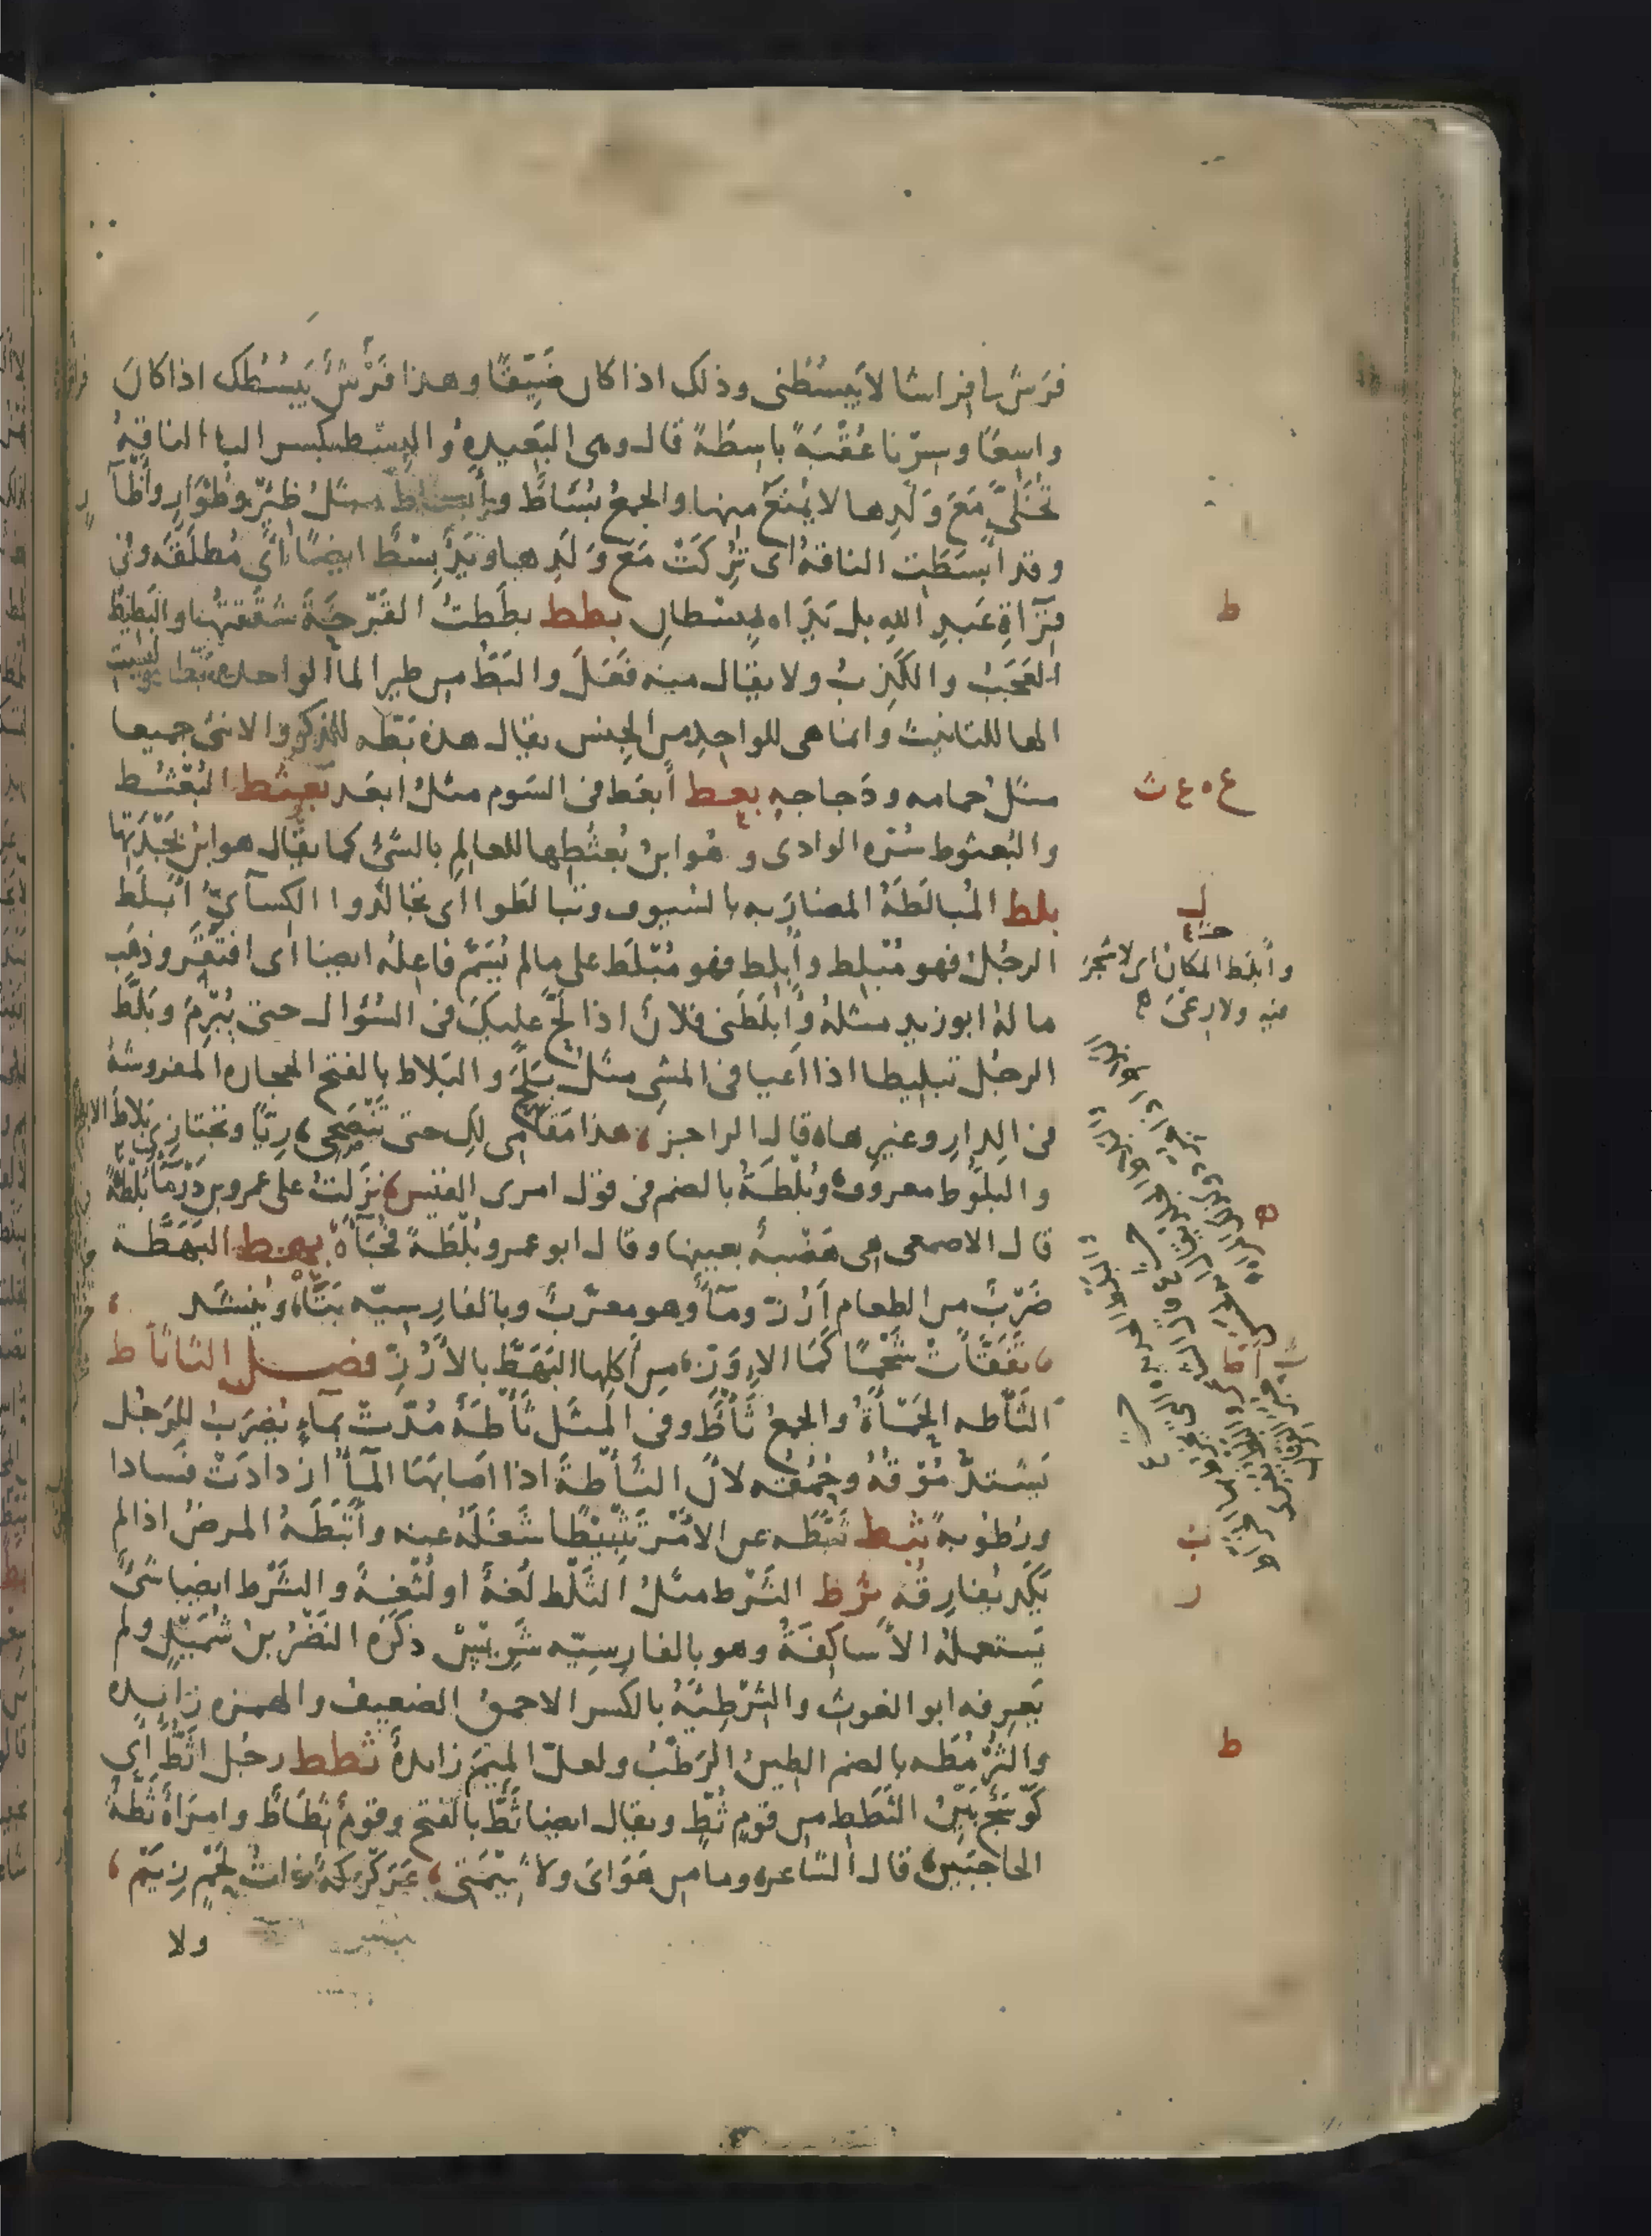 فرش لى فراشا لا يبسطنى وذلك اذا كان ضيقا وهذا فرش يبسطك اذا كان
واسعا وسرنا عقبة باسطة قال وهى البعيدة والبسط بكسر الباء الناقة
تخلى مع ولدها لا يمنع منها والجمع بساط وأبساط مثل ظئر وظؤار وأظآر
وقد أبسطت الناقة اى تركت مع ولدها ويد بسط ايضا اى مطلقة وفى
قراءة عبد الله بل يداه بسطان بطط بططت القرحة شققتها والبطيط
العجب والكذب ولا يقال منه فعل والبط من طير الماء الواحدة بطة وليست
الهاء للتانيث وانما هى للواحد من الجنس يقال هذه بطة للذكر والانثى جميعا
مثل حمامه ودجاجه بعط أبعط فى السوم مثل ابعد بعثط البعثط
والبعثوط سرة الوادى وهو ابن بعثطها للعالم بالشئ كما يقال هو ابن بجدتها
بلط المبالطة المضاربه بالسيوف وتبالطوا اى تجالدوا الكسآئى أبلط
الرجل فهو مبلط وأبلط فهو مبلط على ما لم يسم فاعله ايضا اى افتقر وذهب
ماله ابو زيد مثله وأبلطنى فلان اذا لج عليك فى السؤال حتى يبرم وبلط
الرجل تبليطا اذا اعيا فى المشى مثل بلح والبلاط بالفتح الحجاره المفروشة
فى الدار وغيرها قال الراجز هذا مقامى لك حتى تنضحى ريا وتجتازى بلاط الابطح
والبلوط معروف وبلطة بالضم فى قول امرى القيس نزلت على عمرو بن درماء بلطة
قال الاصمعى هى هضبة بعينها وقال ابو عمرو بلطة فجآة بهط البهطة
ضرب من الطعام أرز ومآء وهو معرب وبالفارسيه بتاه وينشد
تفقأت شحما كما الاوز من أكلها البهط بالأرز فصل الثا ثأط
الثأطه الحمأة والجمع ثأط وفى المثل ثأطة مدت بمآء يضرب للرجل
يشتد موقه وحمقه لان الثأطة اذا اصابها المآء ازدادت فسادا
ورطوبة ثبط ثبطه عن الامر تثبيطا شغله عنه وأثبطه المرض اذا لم
يكد يفارقه ثرط الثرط مثل الثلط لغة او لثغة والثرط ايضا شئ
يستعمله الأساكفة وهو بالفارسيه شريس ذكره النضر بن شميل ولم
يعرفه ابو الغوث والثرطئة بالكسر الاحمق الضعيف والهمزه زايده
والثرمطه بالضم الطين الرطب ولعل الميم زايدة ثطط رجل اثط اى
كوسج بين الثطط من قوم ثط ويقال ايضا ثط بالفتح وقوم ثطاط وامراة ثطة
الحاجبين قال الشاعر وما من هواى ولا شيمتى عركركة ذات لحم زيم
ولا
ط
ع ه ع ث
ل
وأبلط المكان اى لا شجر
فيه ولا رعى
ه
أ
ب
ر
ط